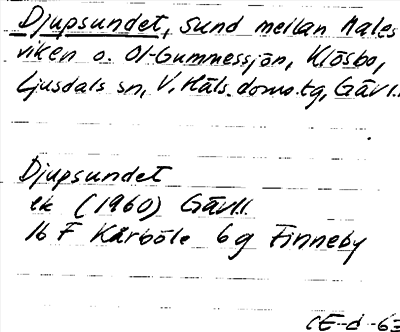 Djupsundet, sund mellan Males
viken o. Ol-Gummessjön, Klösbo,
Ljusdals sn, V. Häls. doms.tg, Gävl.
Djupsundet
ek (1960) Gävl.l.
16 F Kårböle 6g Finneby
CE-d-63